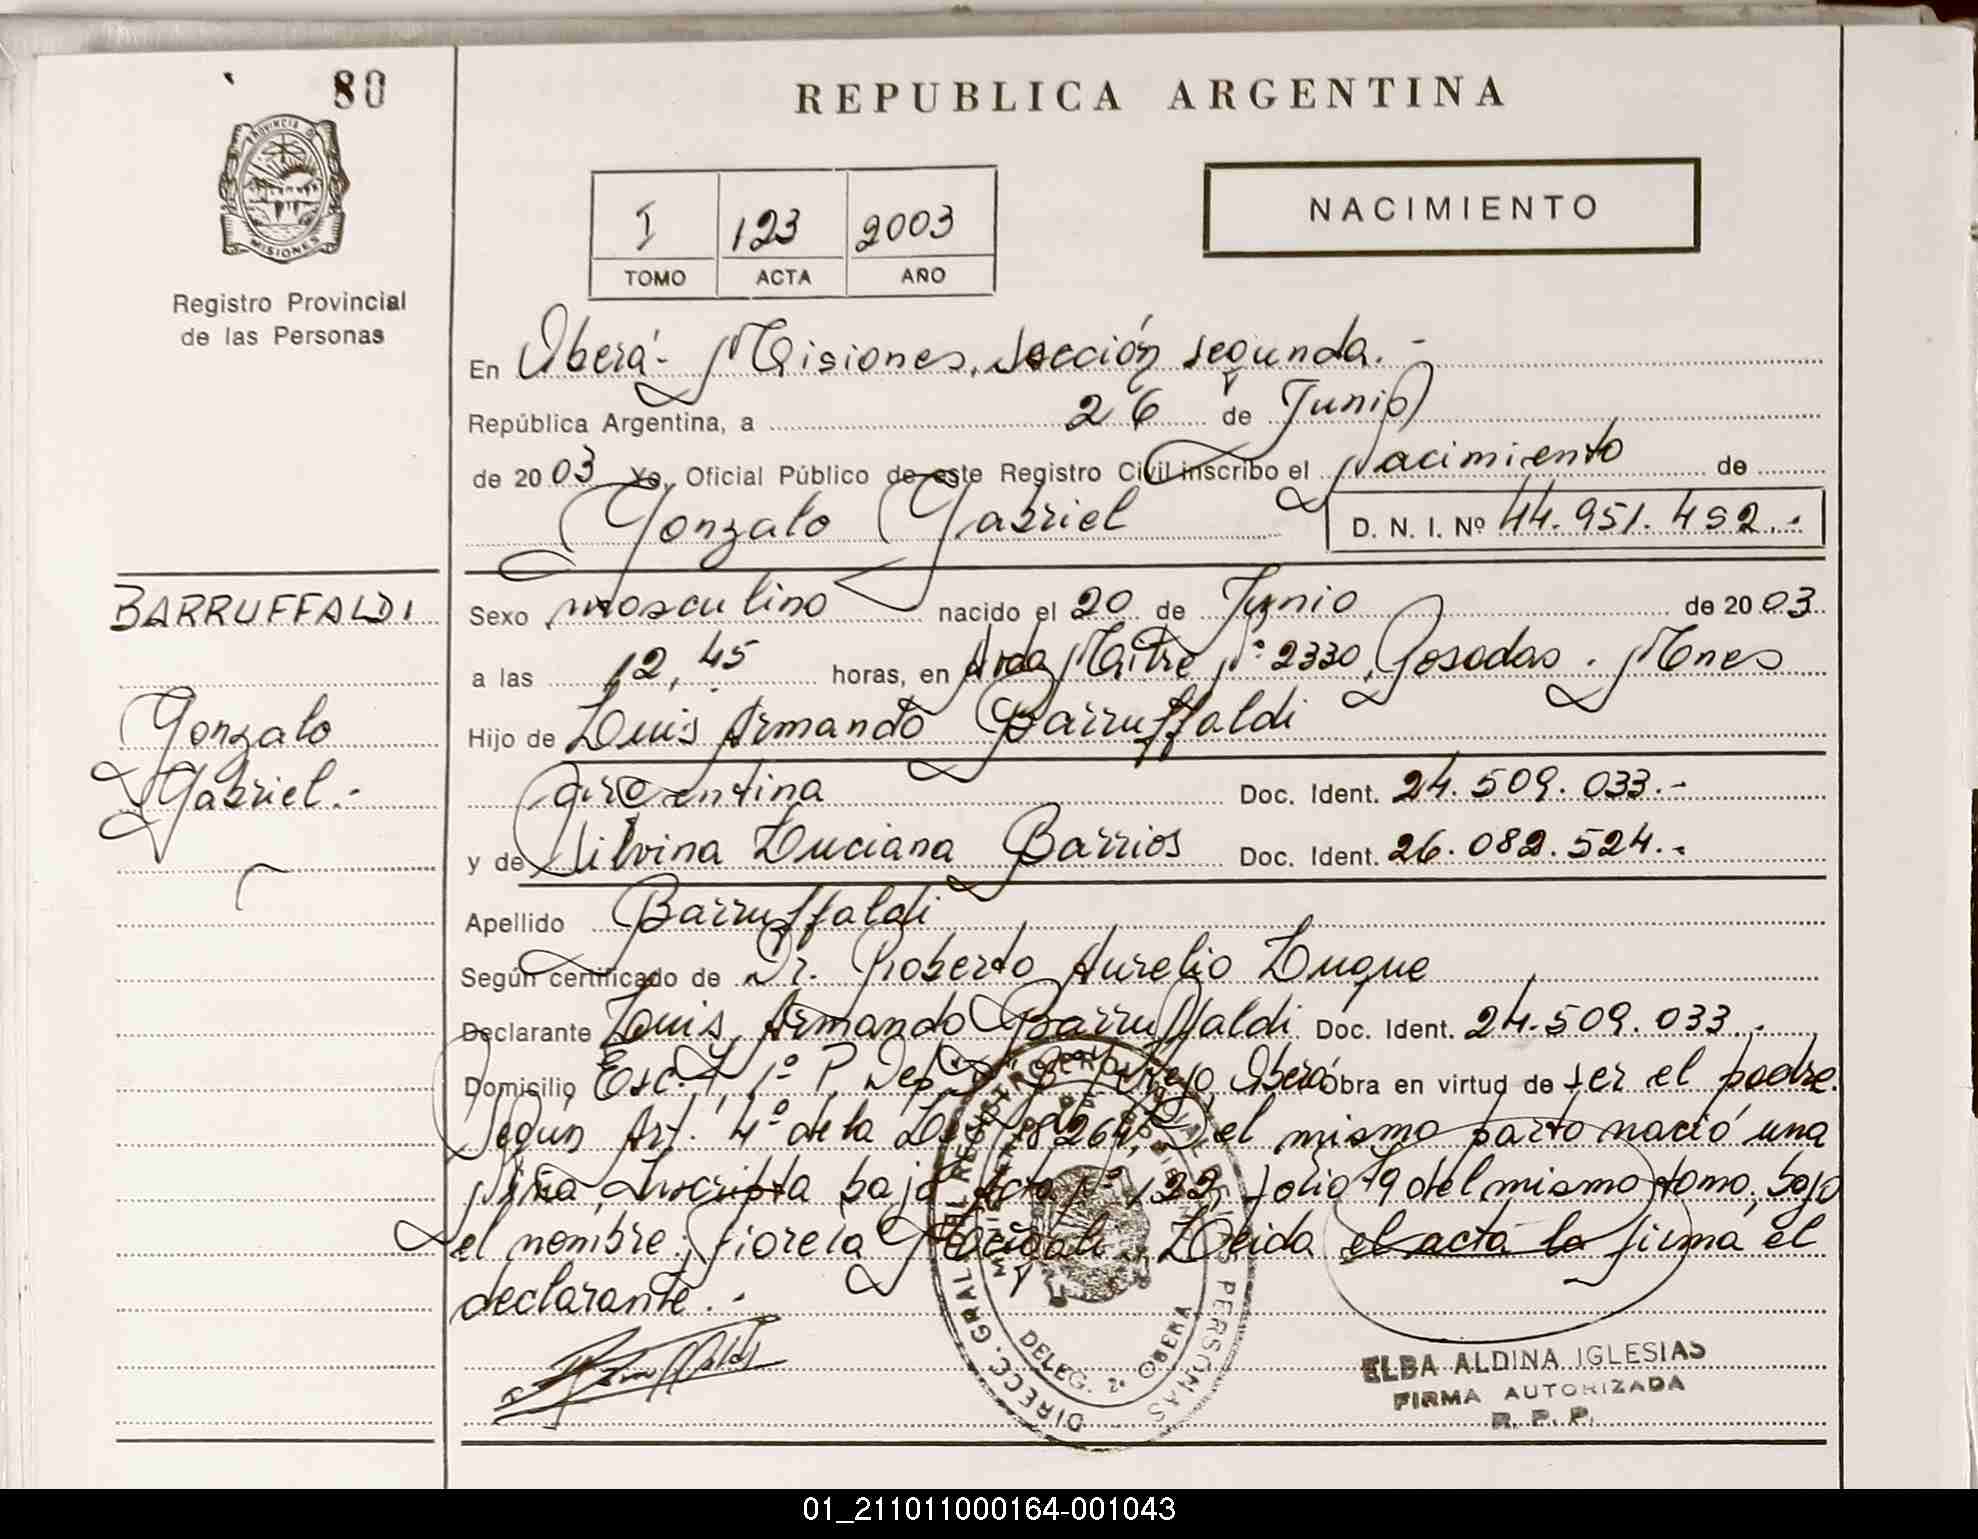 80
PROVINCIA D
MISIONES
Registro Provincial
de las Personas
REPUBLICA ARGENTINA
I 123 2003
TOMO ACTA AÑO
NACIMIENTO
En Oberá - Misiones, Sección segunda. -
República Argentina, a 26 de Junio
de 2003 Yo, Oficial Público de este Registro Civil inscribo el nacimiento de
Gonzalo Gabriel D. N. I. Nº 44.951.492.-
BARRUFFALDI
Gonzalo
Gabriel.-
Sexo masculino nacido el 20 de Junio de 2003
a las 12,45 horas, en Avda Mitre Nº 2330, Posadas. Mnes
Hijo de Luis Armando Barruffaldi
argentina Doc. Ident. 24.509.033.-
y de Silvina Luciana Barrios Doc. Ident. 26.082.524.-
Apellido Barruffaldi
Según certificado de Dr. Roberto Aurelio Luque
Declarante Luis Armando Barruffaldi Doc. Ident. 24.509.033.-
Domicilio Esc. 1, 1º P, Dep. Oberá Obra en virtud de ser el padre.
Según Art. 4º de la Ley 18264, Del mismo parto nació una
Niña inscripta bajo Acta Nº 122, folio 79 del mismo tomo, bajo
el nombre: Fiorela Leida el acta la firma el
declarante.-
DIRECC. GRAL. DEL REGISTRO PROVINCIAL DE LAS PERSONAS
DELEG. 2ª OBERA
ELBA ALDINA IGLESIAS
FIRMA AUTORIZADA
R. P. P.
01_211011000164-001043